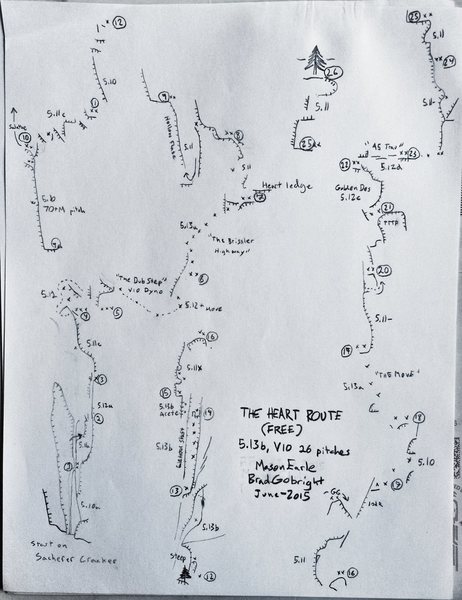 12
5.10
11
5.11c
10
5.10
70+M pitch
9
5.11
Hollow Flake
8
5.11
Heart ledge
7
5.13a
"The Brissler
Highway"
6
5.12+ Move
"The Dub Step"
V10 Dyno
5
5.12
4
5.11c
3
5.12a
2
5.11b
1
5.10a
Start on
Sacherer Cracker
6
5.11x
15
5.13b
Arete
14
5.13b
13
5.13b
Steep
12
THE HEART ROUTE
(FREE)
5.13b, V10 26 pitches
Mason Earle
Brad Gobright
June - 2015
26
5.11
25
25
5.11
24
5.11-
"A5 Trav"
5.12d
23
22
Golden Des
5.12c
21
20
5.11-
19
"THE MOVE"
5.13a
18
5.10
17
5.11
16